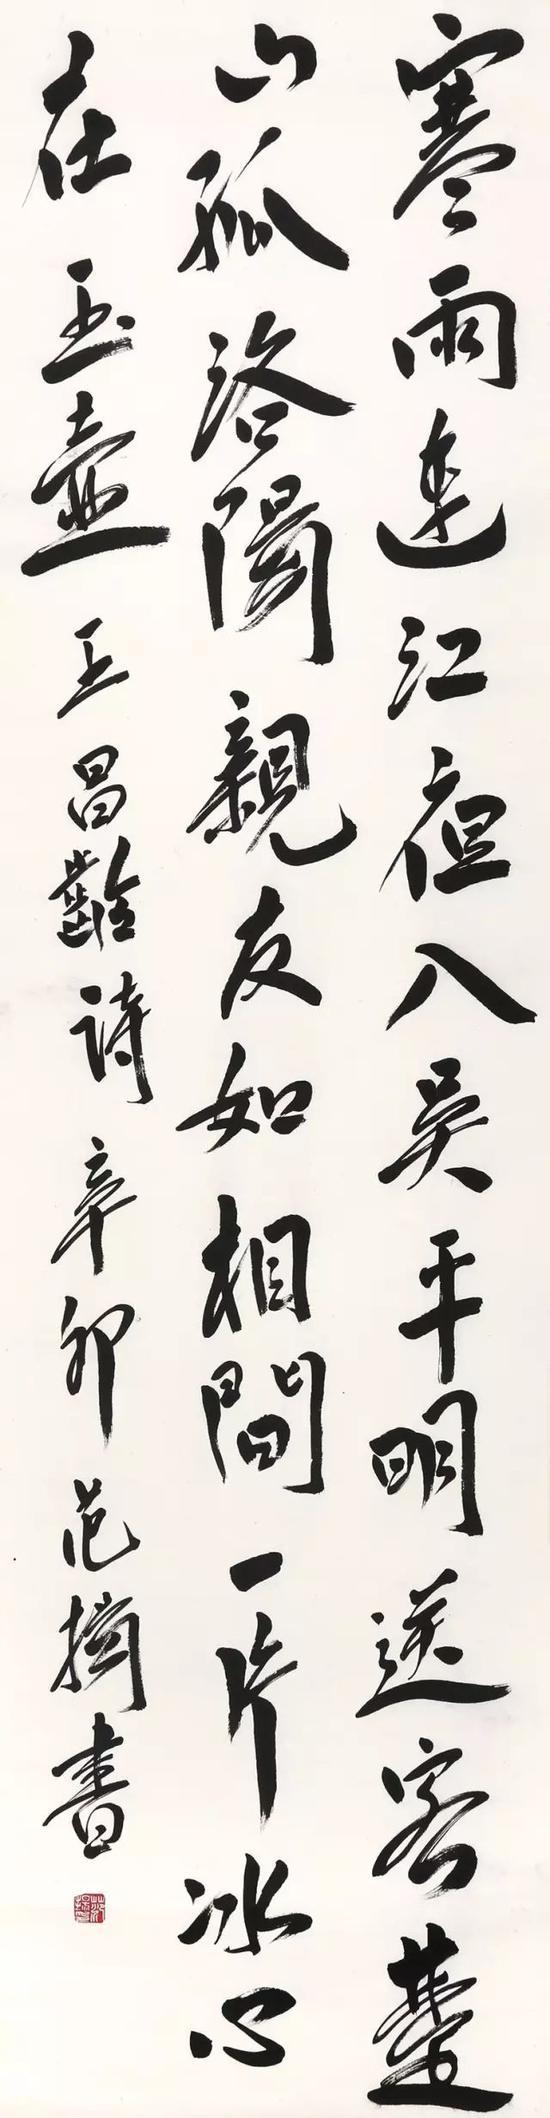 寒雨連江夜入吳平明送客楚
山孤洛陽親友如相問一片冰心
在玉壺王昌齡詩辛卯范揚書